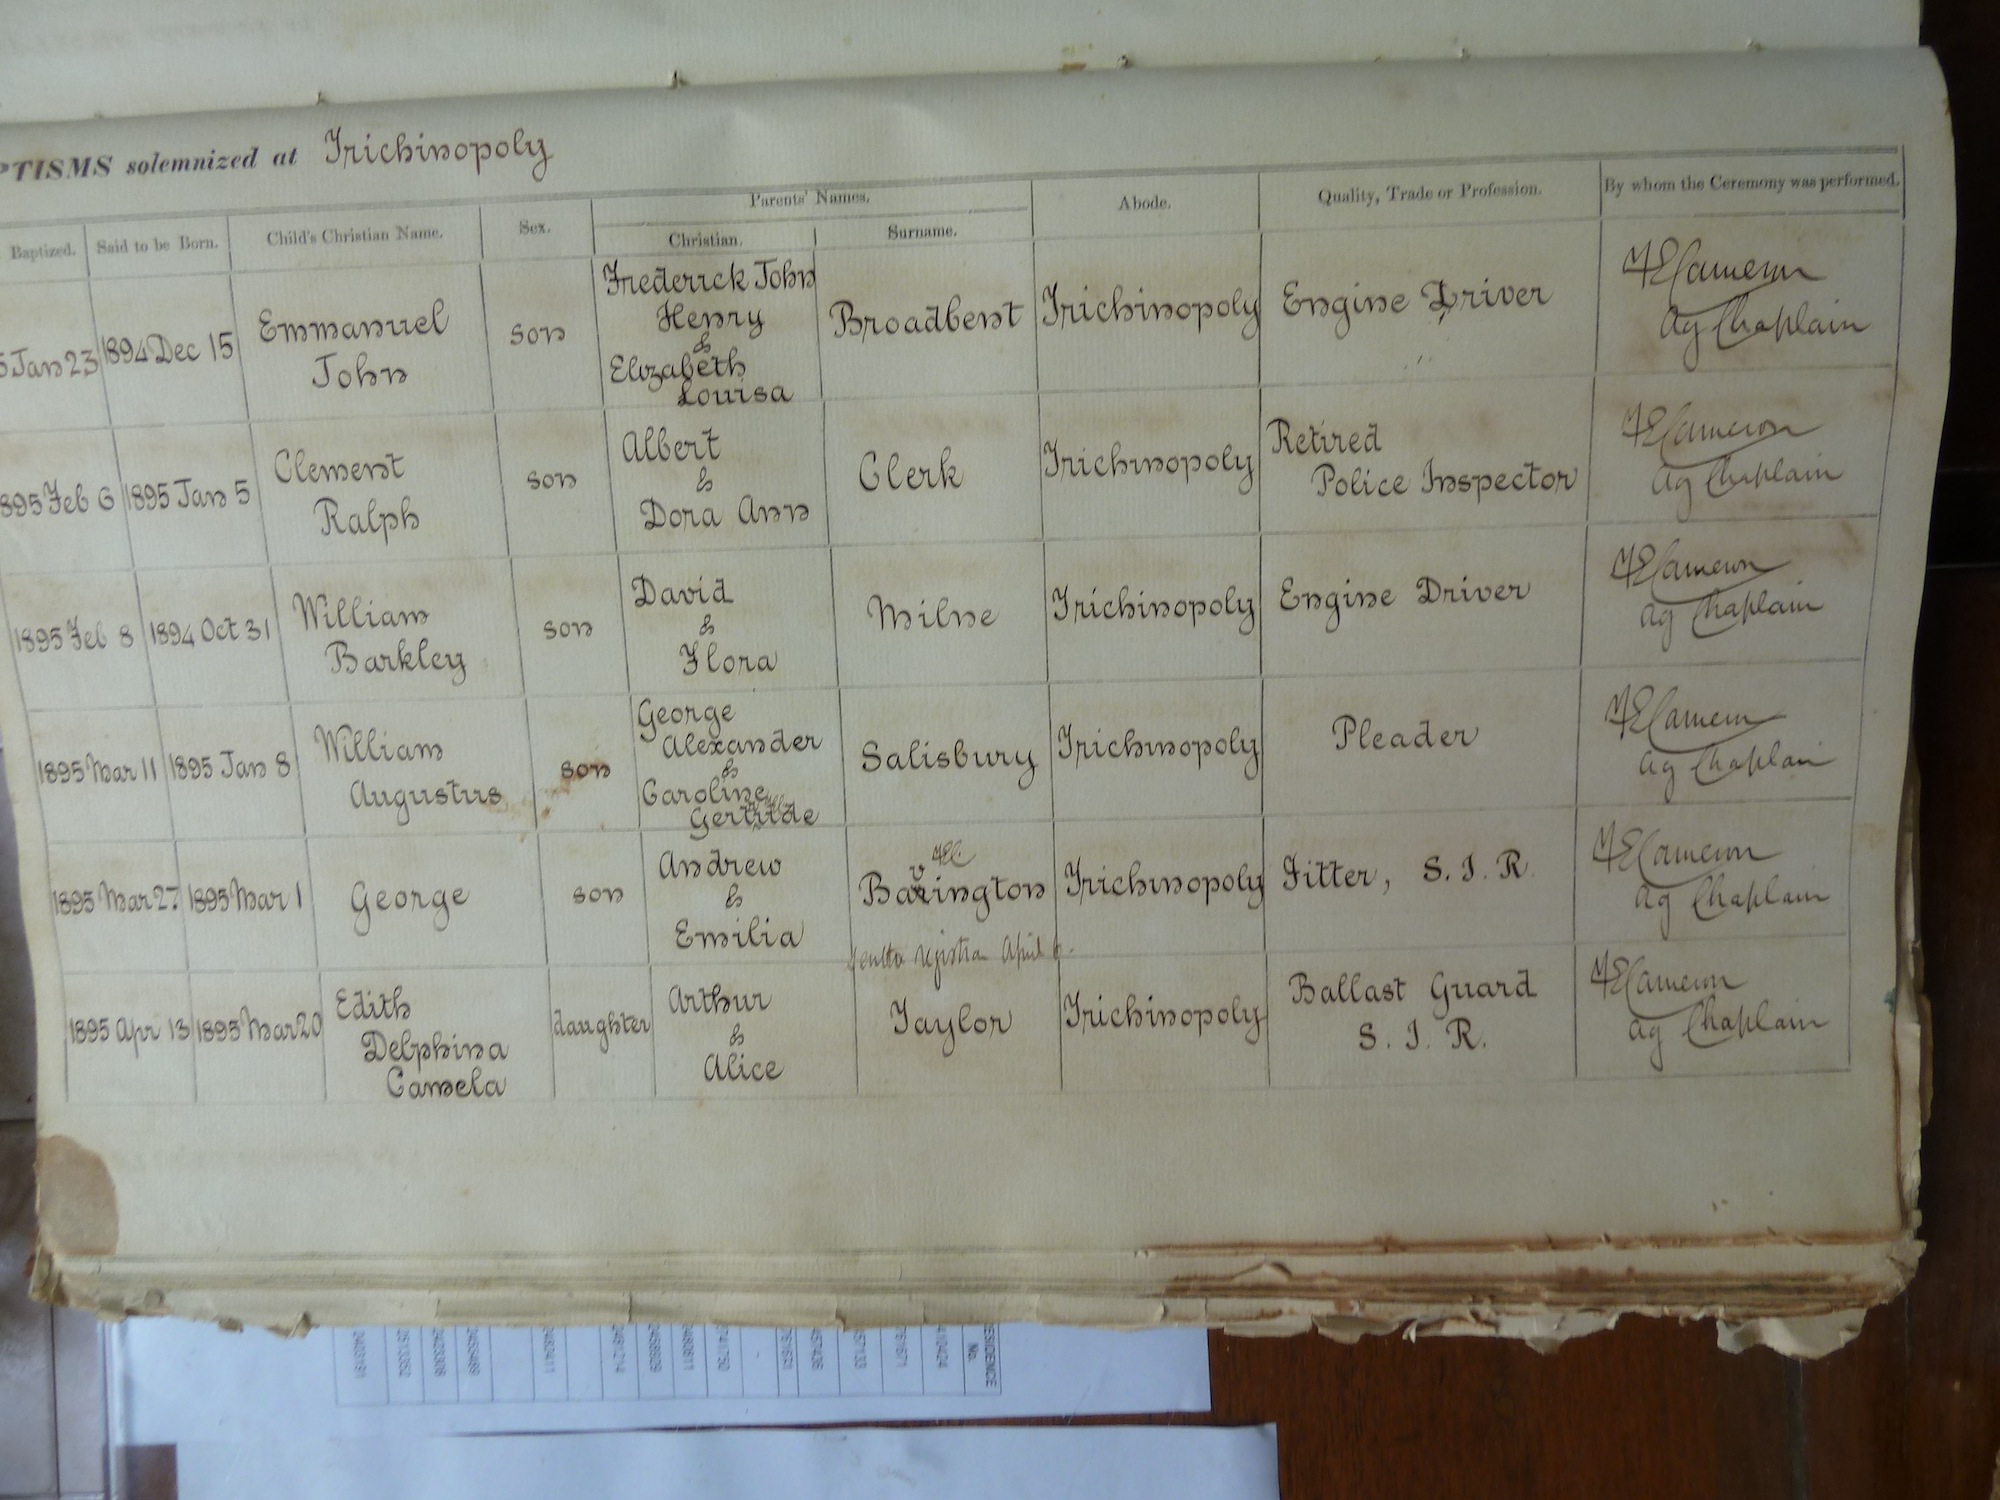 PTISMS solemnized at Trichinopoly
Baptized. Said to be Born. Child's Christian Name. Sex. Parents' Names. Abode. Quality, Trade or Profession. By whom the Ceremony was performed.
Christian. Surname.
5 Jan 23 1894 Dec 15 Emmanuel John son Frederick John Henry & Elizabeth Louisa Broadbent Trichinopoly Engine Driver MECameron Ag Chaplain
895 Feb 6 1895 Jan 5 Clement Ralph son Albert & Dora Ann Clerk Trichinopoly Retired Police Inspector MECameron Ag Chaplain
1895 Feb 8 1894 Oct 31 William Barkley son David & Flora Milne Trichinopoly Engine Driver MECameron Ag Chaplain
1895 Mar 11 1895 Jan 8 William Augustus son George Alexander & Caroline Salisbury Trichinopoly Pleader MECameron Ag Chaplain
1895 Mar 27 1895 Mar 1 George son Andrew & Emilia Barington Trichinopoly Fitter, S. I. R. MECameron Ag Chaplain
April 6.
1895 Apr 13 1895 Mar 20 Edith Delphina Camela daughter Arthur & Alice Taylor Trichinopoly Ballast Guard S. I. R. MECameron Ag Chaplain